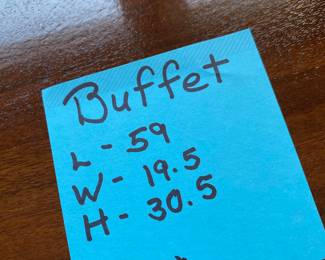 Buffet
L - 59
W - 19.5
H - 30.5